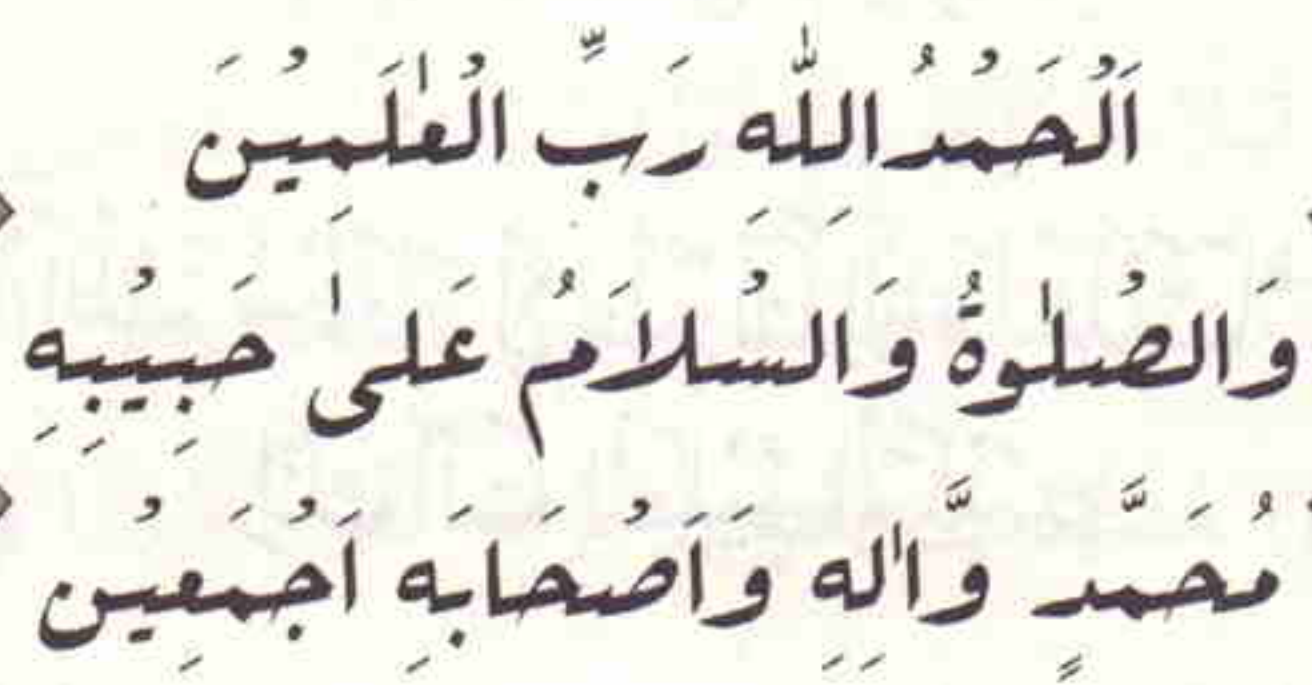 اَلْحَمْدُ الِلّٰهِ رَبِّ الْعٰلَمِيْنَ
وَالصْلٰوةُ وَالسْلَامُ عَلىٰ حَبِيْبِهِ
مُحَمَّدٍ وَّاٰلِهِ وَاَصْحَابِهِ اَجْمَعِيْن